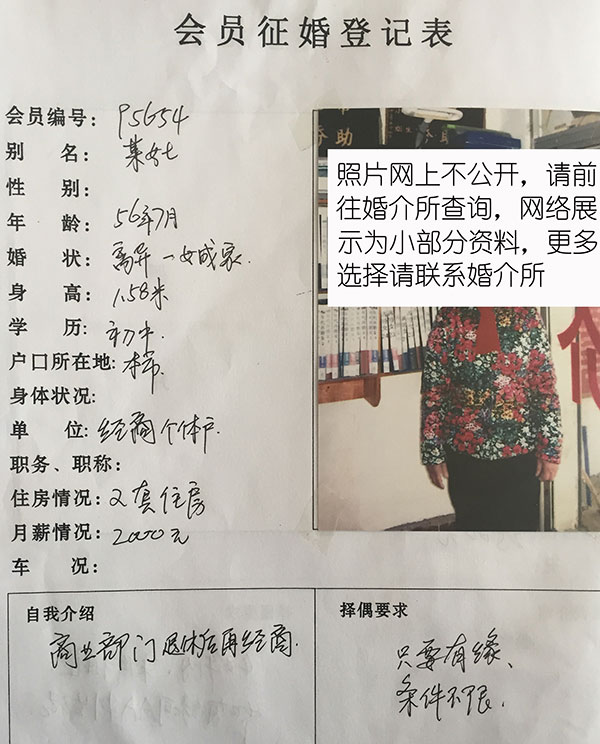 会员征婚登记表
会员编号: P5654
别 名: 某女士
性 别:
年 龄: 56年7月
婚 状: 离异 一女成家.
身 高: 1.58米
学 历: 初中.
户口所在地: 本市.
身体状况:
单 位: 经商个体户.
职务、职称:
住房情况: 2套住房
月薪情况: 2000元
车 况:
照片网上不公开，请前
往婚介所查询，网络展
示为小部分资料，更多
选择请联系婚介所
自我介绍
商业部门退休后再经商.
择偶要求
只要有缘、
条件不限.